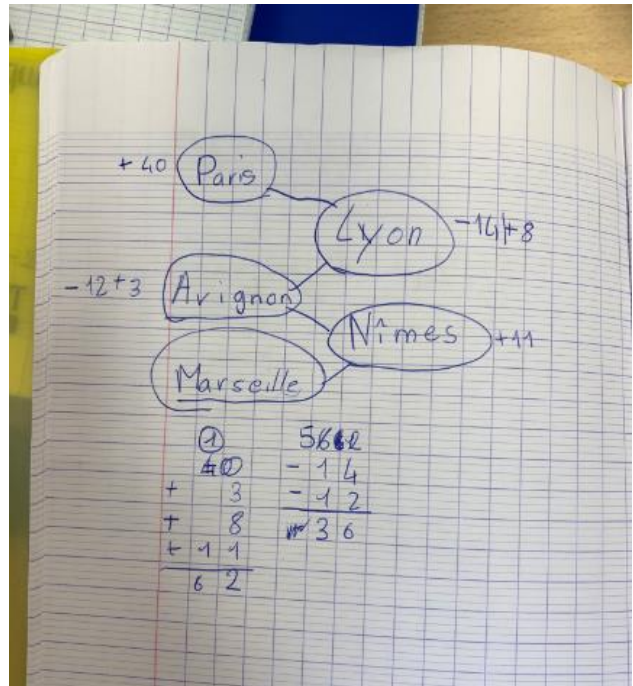 + 40 Paris
Lyon -14+8
-12+3 Avignon
Nîmes +11
Marseille
1
40
+ 3
+ 8
+ 11
62
- 14
- 12
36